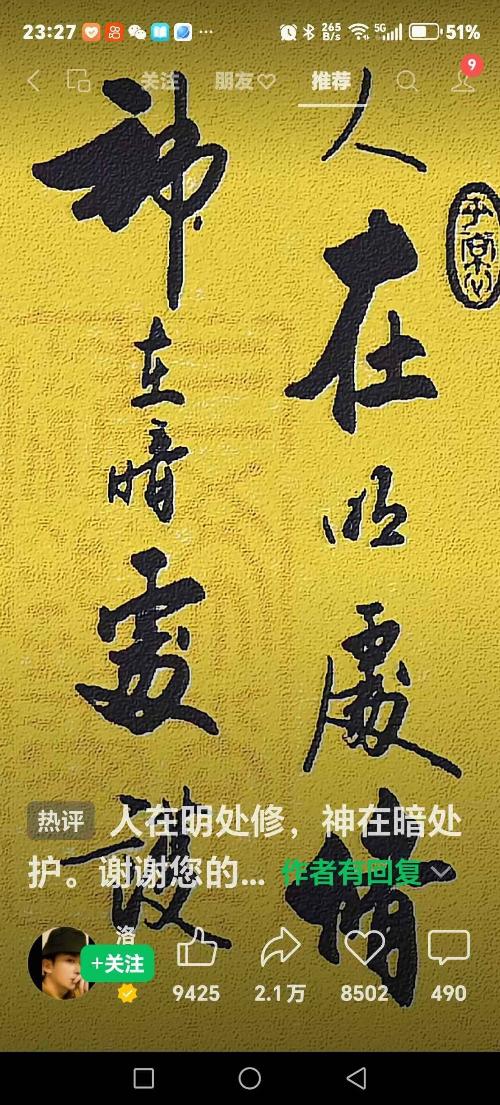 23:27 ··· 265 B/s 5G 51%
9
关注 朋友♡ 推荐
人在明處修
神在暗處護
热评 人在明处修，神在暗处
护。谢谢您的... 作者有回复
洛
+关注
9425 2.1万 8502 490